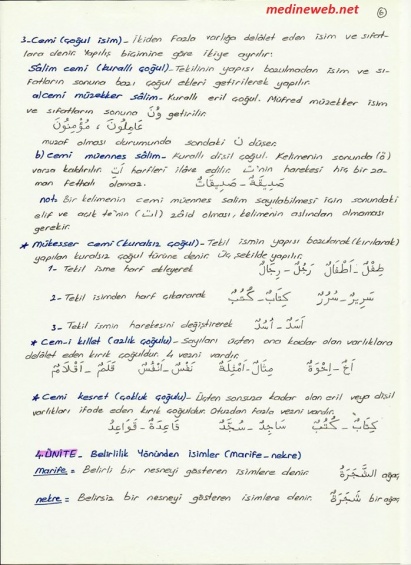 medineweb.net
6
3-Cemi (çoğul isim)- İkiden fazla varlığa delâlet eden isim ve sıfat-
lara denir. Yapılış biçimine göre ikiye ayrılır:
Sâlim cemi (kurallı çoğul)- Tekilinin yapısı bozulmadan isim ve sı-
fatların sonuna bazı çoğul ekleri getirilerek yapılır.
a) cemi müzekker sâlim- Kurallı eril çoğul. Müfred müzekker isim
ve sıfatların sonuna ونَ getirilir.
عَامِلُونَ ; مُؤْمِنُونَ
muzaf olması durumunda sondaki ن düşer.
b) cemi müennes sâlim- Kurallı dişil çoğul. Kelimenin sonunda (ة)
varsa kaldırılır. اتٌ harfleri ilâve edilir. ت'nin harekesi hiç bir za-
man fethalı olamaz. صَدِيقَةٌ - صَدِيقَاتٌ
not: Bir kelimenin cemi müennes salim sayılabilmesi için sonundaki
elif ve açık te'nin (ات) zâid olması, kelimenin aslından olmaması
gerekir.
* Mükesser cemi (kuralsız çoğul)- Tekil ismin yapısı bozularak (kırılarak)
yapılan kuralsız çoğul türüne denir. Üç şekilde yapılır.
1- Tekil isme harf ekleyerek طِفْلٌ - أَطْفَالٌ رَجُلٌ - رِجَالٌ
2- Tekil isimden harf çıkararak سَرِيرٌ - سُرُرٌ كِتَابٌ - كُتُبٌ
3- Tekil ismin harekesini değiştirerek أَسَدٌ - أُسُدٌ
* Cem-i kıllet (azlık çoğulu)- Sayıları üçten ona kadar olan varlıklara
delâlet eden kırık çoğuldur. 4 vezni vardır.
أَخٌ - إِخْوَةٌ مِثَالٌ - أَمْثِلَةٌ نَفْسٌ - أَنْفُسٌ قَلَمٌ - أَقْلَامٌ
* Cemi kesret (çokluk çoğulu)- Üçten sonsuza kadar olan eril veya dişil
varlıkları ifade eden kırık çoğuldur. Otuzdan fazla vezni vardır.
كِتَابٌ - كُتُبٌ سَاجِدٌ - سُجَّدٌ قَاعِدَةٌ - قَوَاعِدُ
4. ÜNİTE - Belirlilik Yönünden isimler (marife - nekre)
marife = Belirli bir nesneyi gösteren isimlere denir. الشَّجَرَةُ ağaç,
nekre = Belirsiz bir nesneyi gösteren isimlere denir. شَجَرَةٌ bir ağaç,